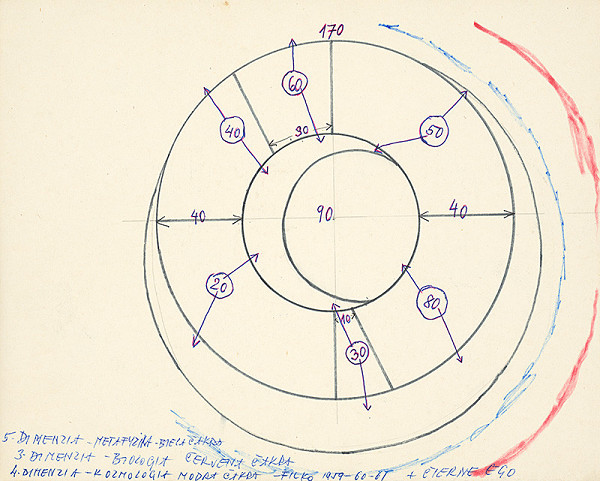 170
60
40
50
30
40
90.
40
20
80
10
30
5. DIMENZIA - METAFYZIKA - BIELA ČAKRA
3. DIMENZIA - BIOLOGIA ČERVENA ČAKRA
4. DIMENZIA - KOZMOLOGIA MODRA ČAKRA - FILKO 1959-60-
+ ČIERNE EGO